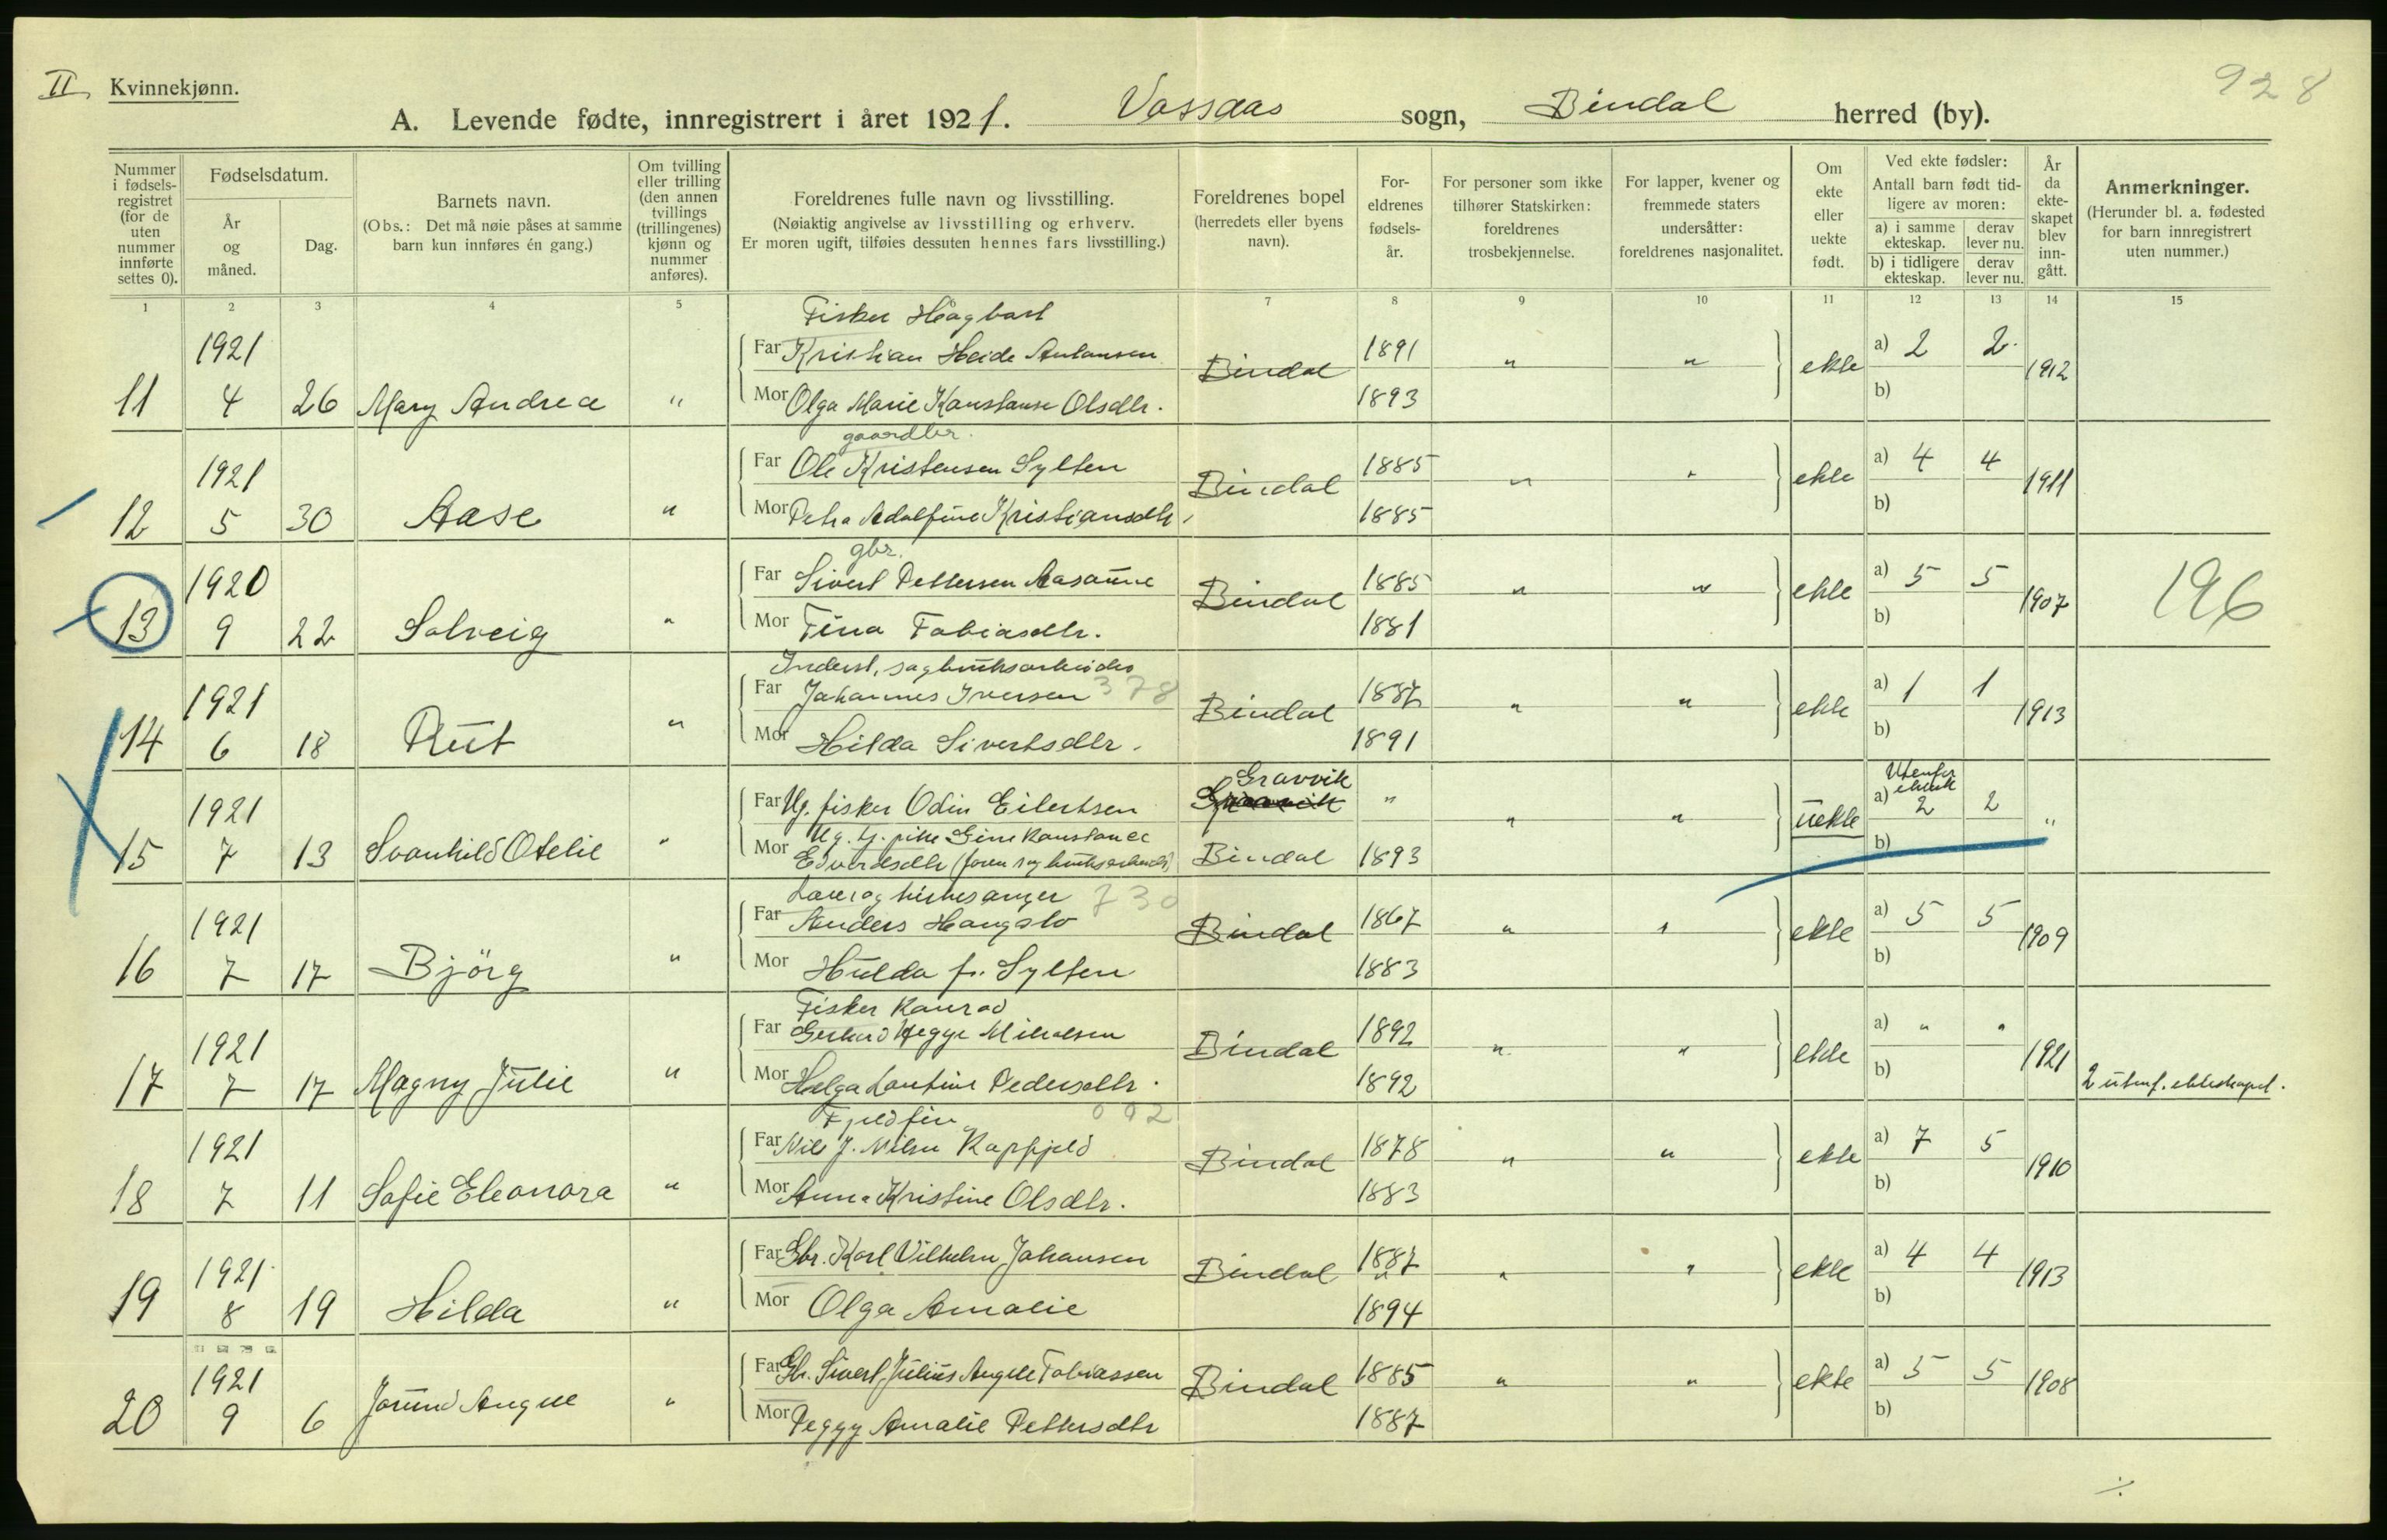 II, Kvinnekjønn.
928
A. Levende fødte, innregistrert i året 1921. Vassaas sogn, Bindal herred (by).
Nummer i fødsels-registret (for de uten nummer innførte settes 0).
Fødselsdatum.
År og måned.
Dag.
Barnets navn.
(Obs.: Det må nøie påses at samme barn kun innføres én gang.)
Om tvilling eller trilling (den annen tvillings (trillingenes) kjønn og nummer anføres).
Foreldrenes fulle navn og livsstilling.
(Nøiaktig angivelse av livsstilling og erhverv.
Er moren ugift, tilføies dessuten hennes fars livsstilling.)
Foreldrenes bopel
(herredets eller byens navn).
For-eldrenes fødsels-år.
For personer som ikke tilhører Statskirken: foreldrenes trosbekjennelse.
For lapper, kvener og fremmede staters undersåtter: foreldrenes nasjonalitet.
Om ekte eller uekte født.
Ved ekte fødsler: Antall barn født tid-ligere av moren:
a) i samme ekteskap.
derav lever nu.
b) i tidligere ekteskap.
derav lever nu.
År da ekte-skapet blev inn-gått.
Anmerkninger.
(Herunder bl. a. fødested for barn innregistrert uten nummer.)
1 2 3 4 5 7 8 9 10 11 12 13 14 15
Fisker Hågbart
1921 Far Kristian Heide Antonsen Bindal 1891 " " ekte a) 2 2 1912
11 4 26 Mary Andrea " Mor Olga Marie Konstanse Olsdtr. 1893 b)
gaardbr.
1921 Far Ole Kristensen Sylten Bindal 1885 " " ekte a) 4 4 1911
12 5 30 Aase " Mor Petra Adolfine Kristiansdtr. 1885 b)
gbr.
1920 Far Sivert Pettersen Aasaune Bindal 1885 " " ekte a) 5 5 1907 196
13 9 22 Solveig " Mor Tina Tobiasdtr. 1881 b)
Inderst, sagbruksarbeider
1921 Far Johannes Iversen 378 Bindal 1887 " " ekte a) 1 1 1913
14 6 18 Rut " Mor Hilda Sivertsdtr. 1891 b)
Gravvik
1921 Far Ug. fisker Odin Eilertsen " " " uekte Utenfor ektesk a) 2 2 "
Mor Ug. tj. pike Gine Konstance
15 7 13 Svanhild Otelie " Edvardsdtr (faren sagbruksarbeider) Bindal 1893 b)
Lærer og kirkesanger 730
1921 Far Anders Haugslo Bindal 1867 " " ekte a) 5 5 1909
16 7 17 Björg " Mor Hulda f. Sylten 1883 b)
Fisker Konrad
1921 Far Gerhard Hegge Mikalsen Bindal 1892 " " ekte a) " " 1921
17 7 17 Magny Julie " Mor Helga Lantine Pedersdtr. 1892 b) 2 utenf. ekteskapet.
Fjeldfin 002
1921 Far Nils J. Nilsen Kappfjeld Bindal 1878 " " ekte a) 7 5 1910
18 7 11 Sofie Eleonora " Mor Anna Kristine Olsdtr. 1883 b)
1921 Far Gbr. Karl Vilhelm Johansen Bindal 1887 " " ekte a) 4 4 1913
19 8 19 Hilda " Mor Olga Amalie 1894 b)
1921 Far Gbr. Sivert Julius Angell Tobiassen Bindal 1885 " " ekte a) 5 5 1908
20 9 6 Jorund Angell " Mor Peggy Amalie Pettersdtr 1887 b)